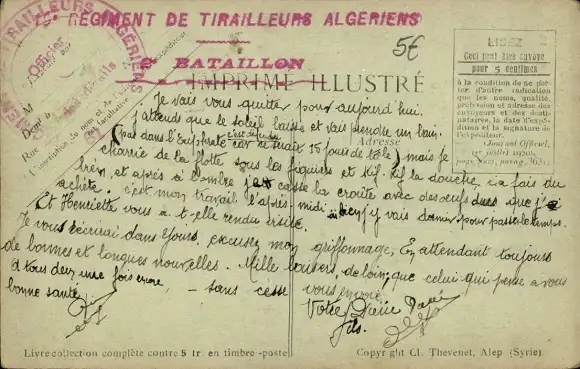 RÉGIMENT DE TIRAILLEURS ALGÉRIENS
BATAILLON
5€
IMPRIMÉ ILLUSTRÉ
LISEZ
Ceci peut être envoyé
pour 5 centimes
à la condition de ne porter
d'autre indication
que les noms, qualité,
profession et adresse des
envoyeurs et des destinataires,
la date d'expédition
et la signature de
l'expéditeur.
(Journal Officiel,
Adresse
Je vais vous quitter pour aujourd'hui.
J'attends que le soleil baisse et vais prendre un bain
(pas dans l'Euphrate car c'est défendu 15 jours de tôle) mais je
charrie de la flotte sous les figuiers et kif-kif la douche, ça fais du
bien, et après à l'ombre j'ai casse la croûte avec des oeufs durs que j'ai
acheté. c'est mon travail l'après-midi j'y vais dormir pour passer le temps.
Et Henriette vous a-t-elle rendu visite.
Je vous écrirai dans jours, excusez mon griffonnage, En attendant toujours
de bonnes et longues nouvelles. Mille baisers de loin, que celui qui pense à vous
à tous deux une fois encore, - sans cesse vous envoie
bonne santé
Votre
fils.
Livre collection complète contre 5 fr. en timbre-poste
Copyright Cl. Thevenet, Alep (Syrie)